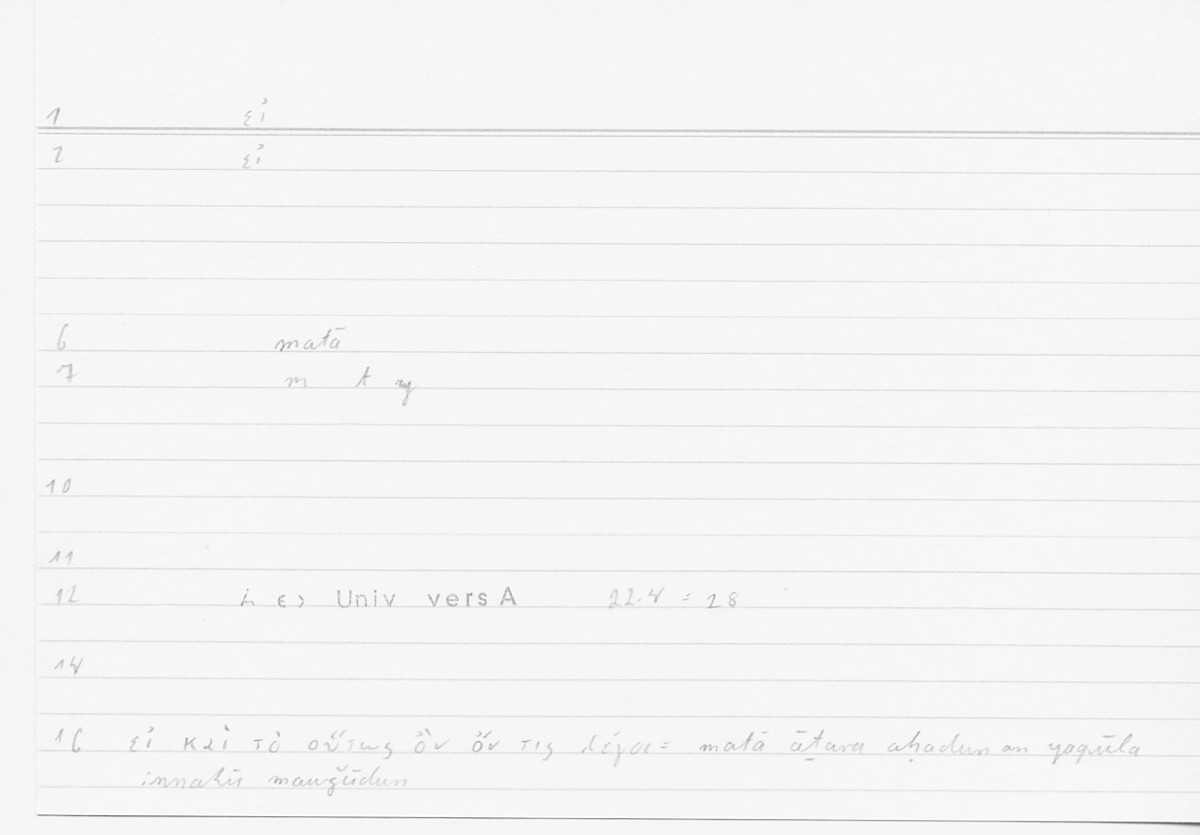 1 εἰ
2 εἰ
6 matā
7 m t y
10
11
12 Univ vers A 22.4 = 28
14
16 εἰ καὶ τὸ οὕτως ὂν ὄν τις λέγοι = matā āṯara aḥadun an yaqūla
innahū mauǧūdun